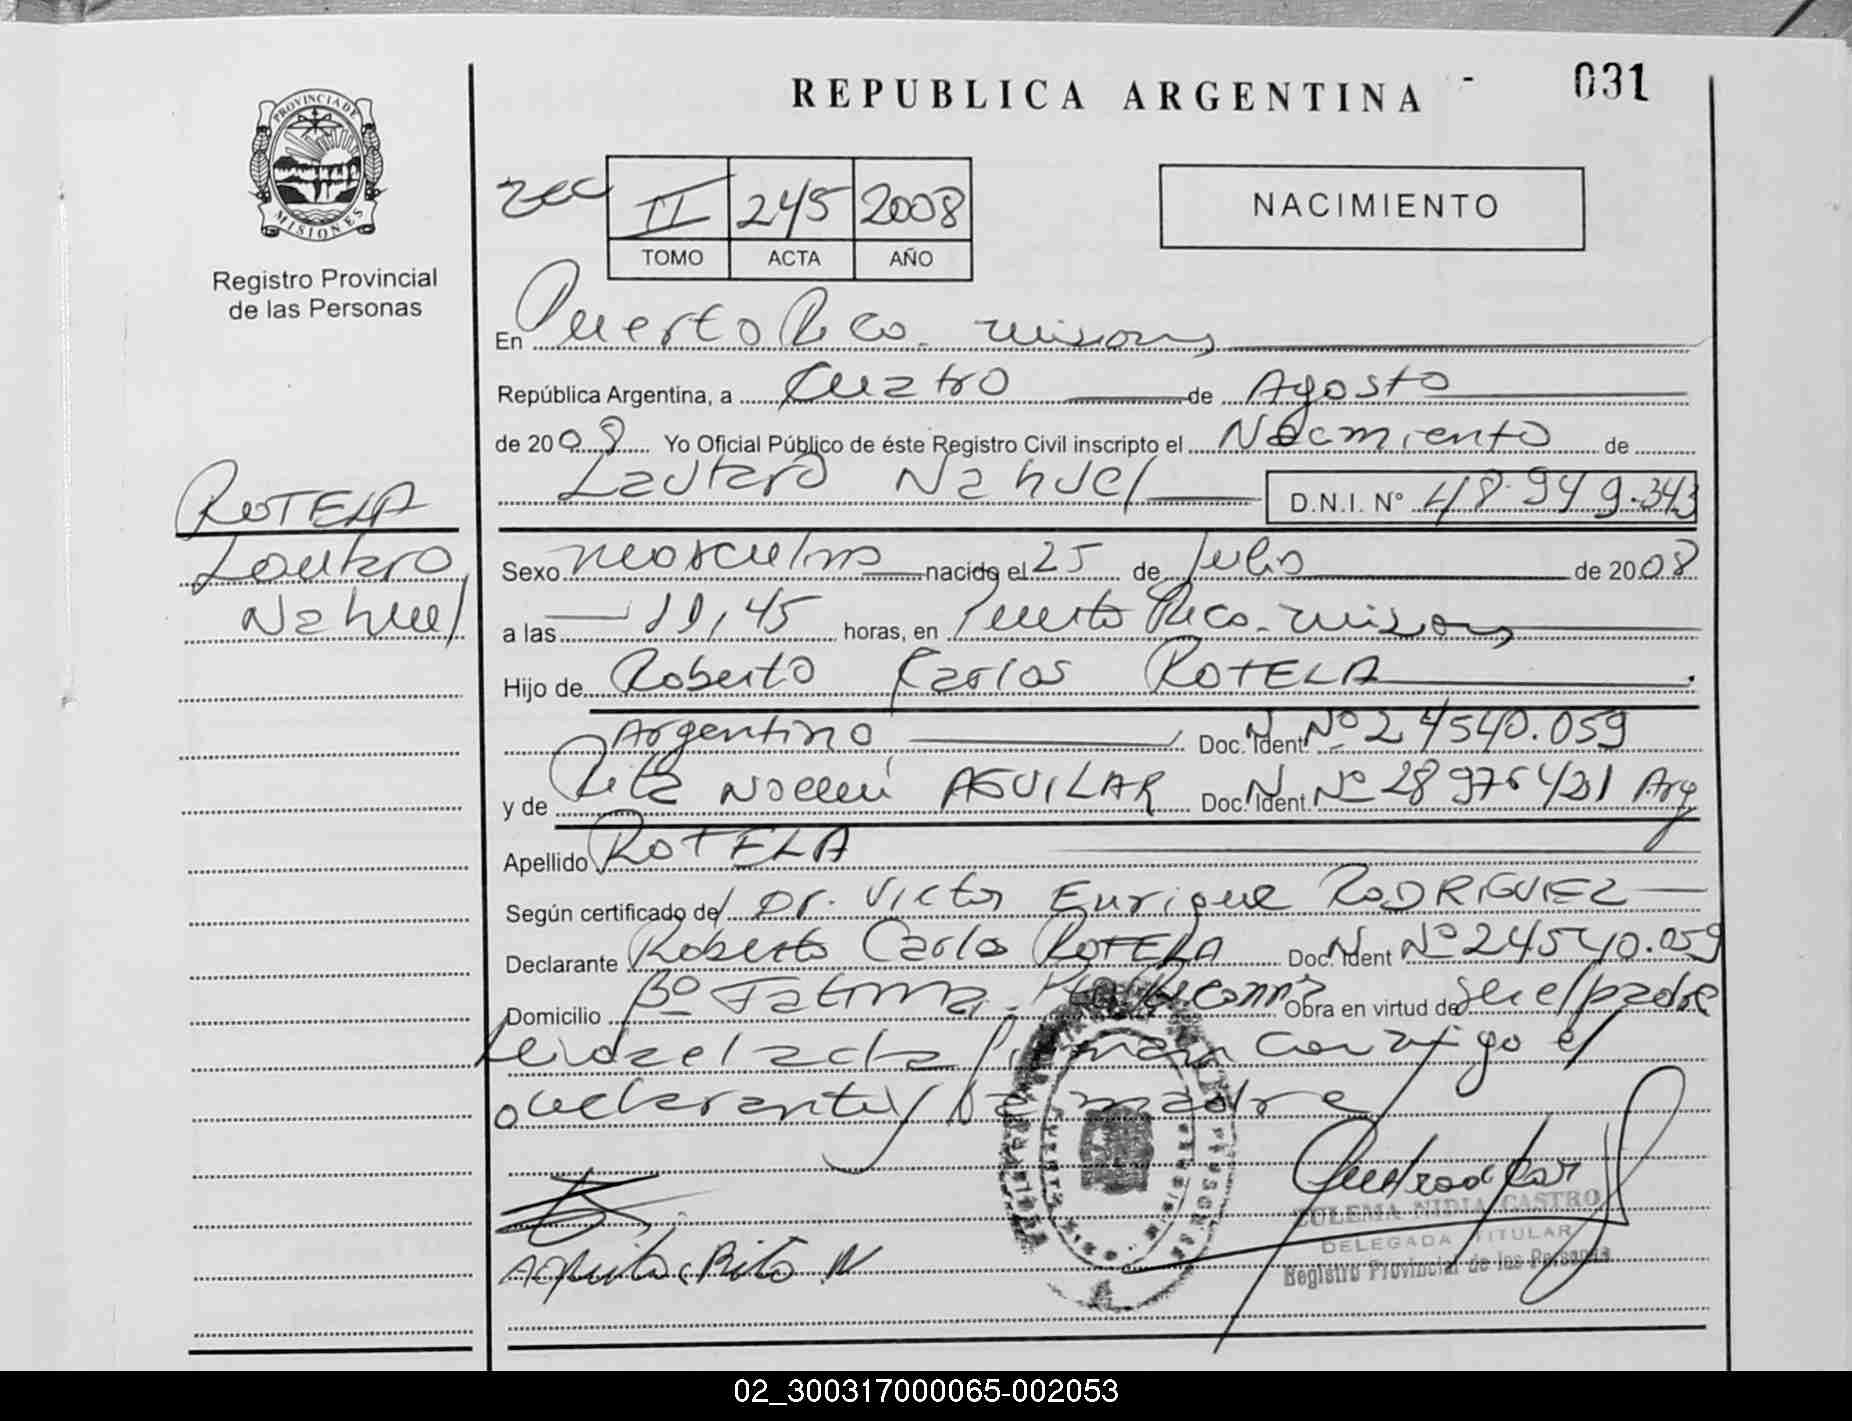 REPUBLICA ARGENTINA
031
PROVINCIA DE
MISIONES
Registro Provincial
de las Personas
II 245 2008
TOMO ACTA AÑO
NACIMIENTO
En Puerto Rico. Misiones
República Argentina, a Cuatro de Agosto
de 2008 Yo Oficial Público de éste Registro Civil inscripto el Nacimiento de
Lautaro Nahuel D.N.I. Nº 48.949.343
ROTELA
Lautaro
Nahuel
Sexo Masculino nacido el 25 de Julio de 2008
a las 11,45 horas, en Puerto Rico. Misiones
Hijo de Roberto Carlos ROTELA
Argentino Doc. N. Ident. Nº 24540.059
y de Rita Noemí AGUILAR Doc. N. Ident. Nº 28976421 Arg
Apellido ROTELA
Según certificado del Dr. Victor Enrique RODRIGUEZ
Declarante Roberto Carlos ROTELA Doc. N. Ident Nº 24540.059
Domicilio Bº Fatima. Obra en virtud de Ser el padre
Leida el acta firman conmigo el
declarante y la madre
ZULEMA NIDIA CASTRO
DELEGADA TITULAR
Registro Provincial de las Personas
02_300317000065-002053